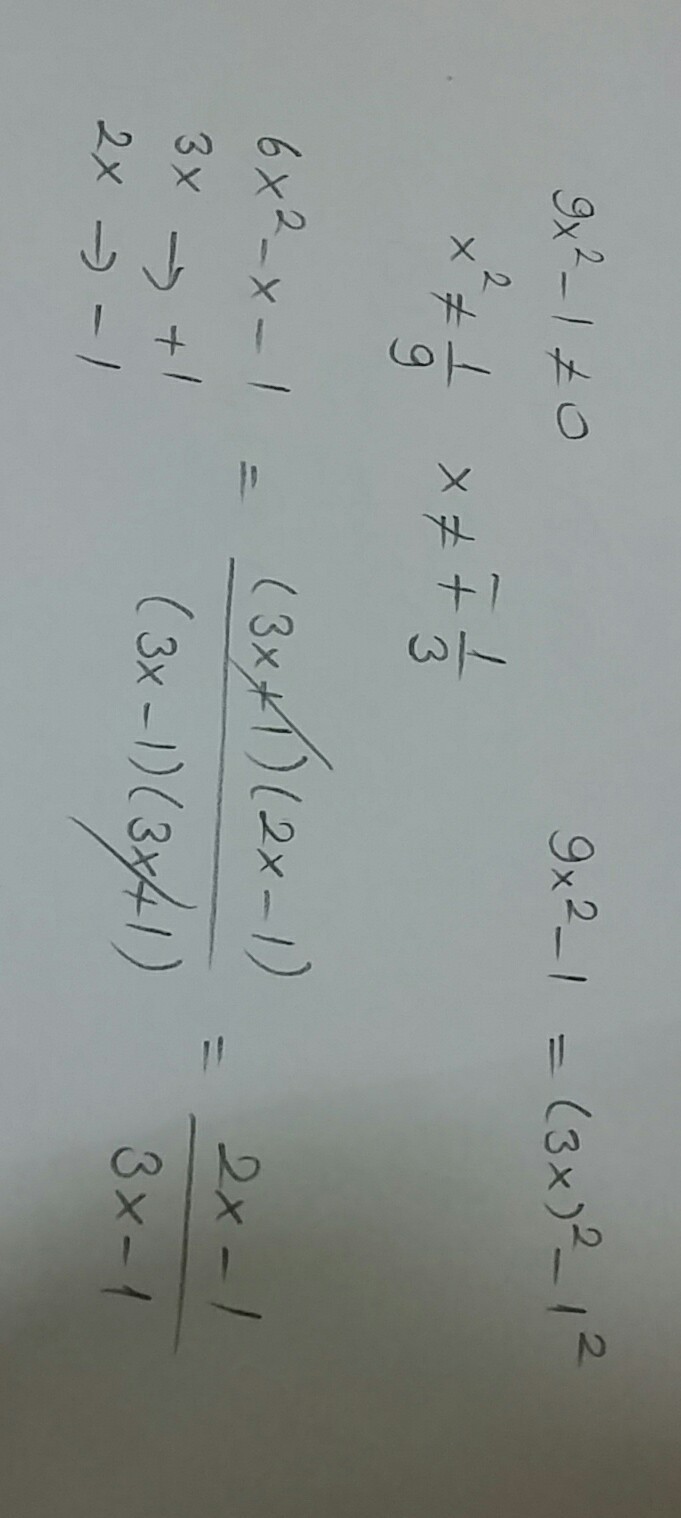 9x² - 1 ≠ 0
9x² - 1 = (3x)² - 1²
x² ≠ 1/9
x ≠ ∓ 1/3
6x² - x - 1
3x → +1
2x → -1
= (3x+1)(2x-1) / (3x-1)(3x+1) = 2x-1 / 3x-1